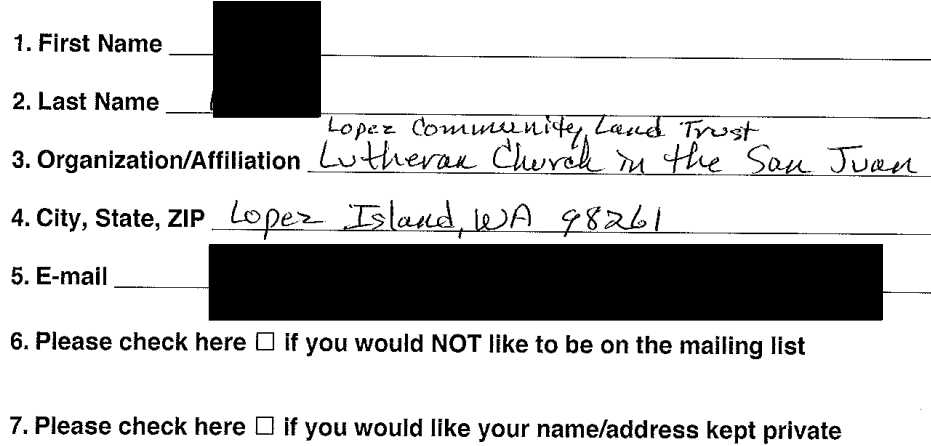 1. First Name
2. Last Name
Lopez Community Land Trust
3. Organization/Affiliation Lutheran Church in the San Juan
4. City, State, ZIP Lopez Island, WA 98261
5. E-mail
6. Please check here ☐ if you would NOT like to be on the mailing list
7. Please check here ☐ if you would like your name/address kept private